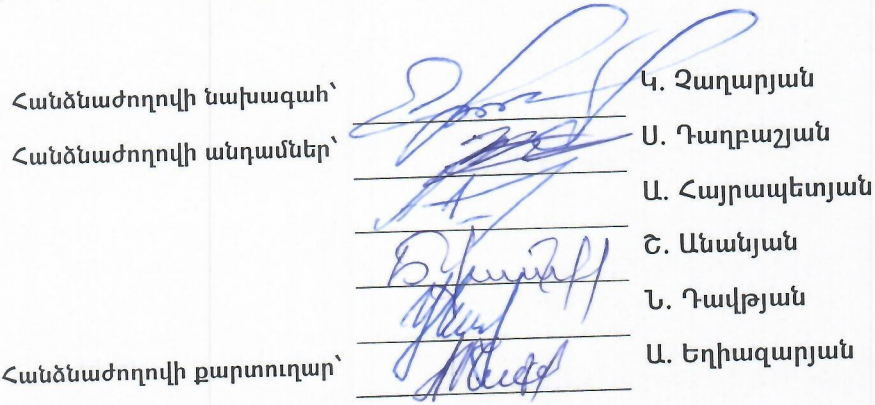 Հանձնաժողովի նախագահ՝ Կ. Չաղարյան
Հանձնաժողովի անդամներ՝ Ս. Դաղբաշյան
Ա. Հայրապետյան
Շ. Անանյան
Ն. Դավթյան
Հանձնաժողովի քարտուղար՝ Ա. Եղիազարյան